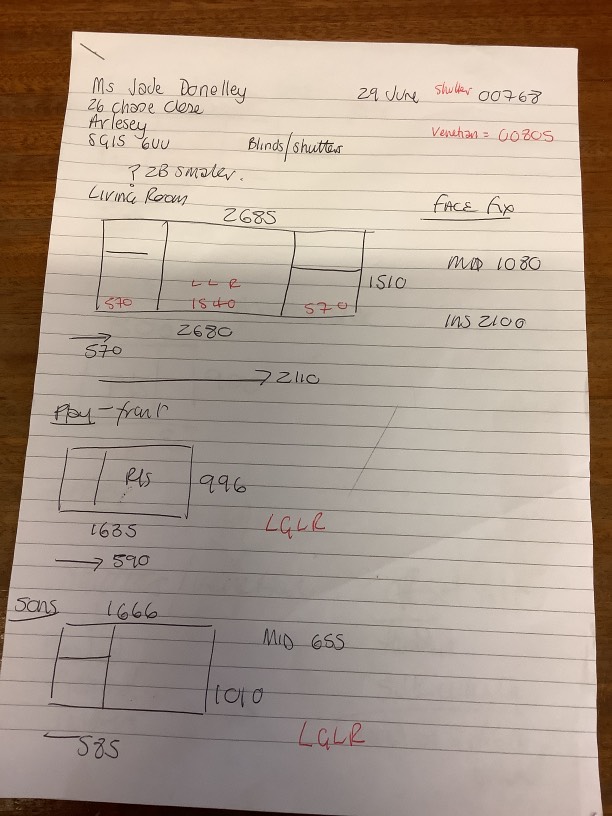 Ms Jade Donelley
29 June Shutter 00768
26 chase close
Arlesey
Venetian = 00805
SG15 6UU
Blinds/Shutters
? 2B smaler.
Living Room
FACE fix
2685
MID 1080
1510
L L R
570 1540 570
INS 2100
2680
570
2110
Play - front
R/S
996
LGLR
1635
590
Sons
1666
MID 655
1010
LGLR
585